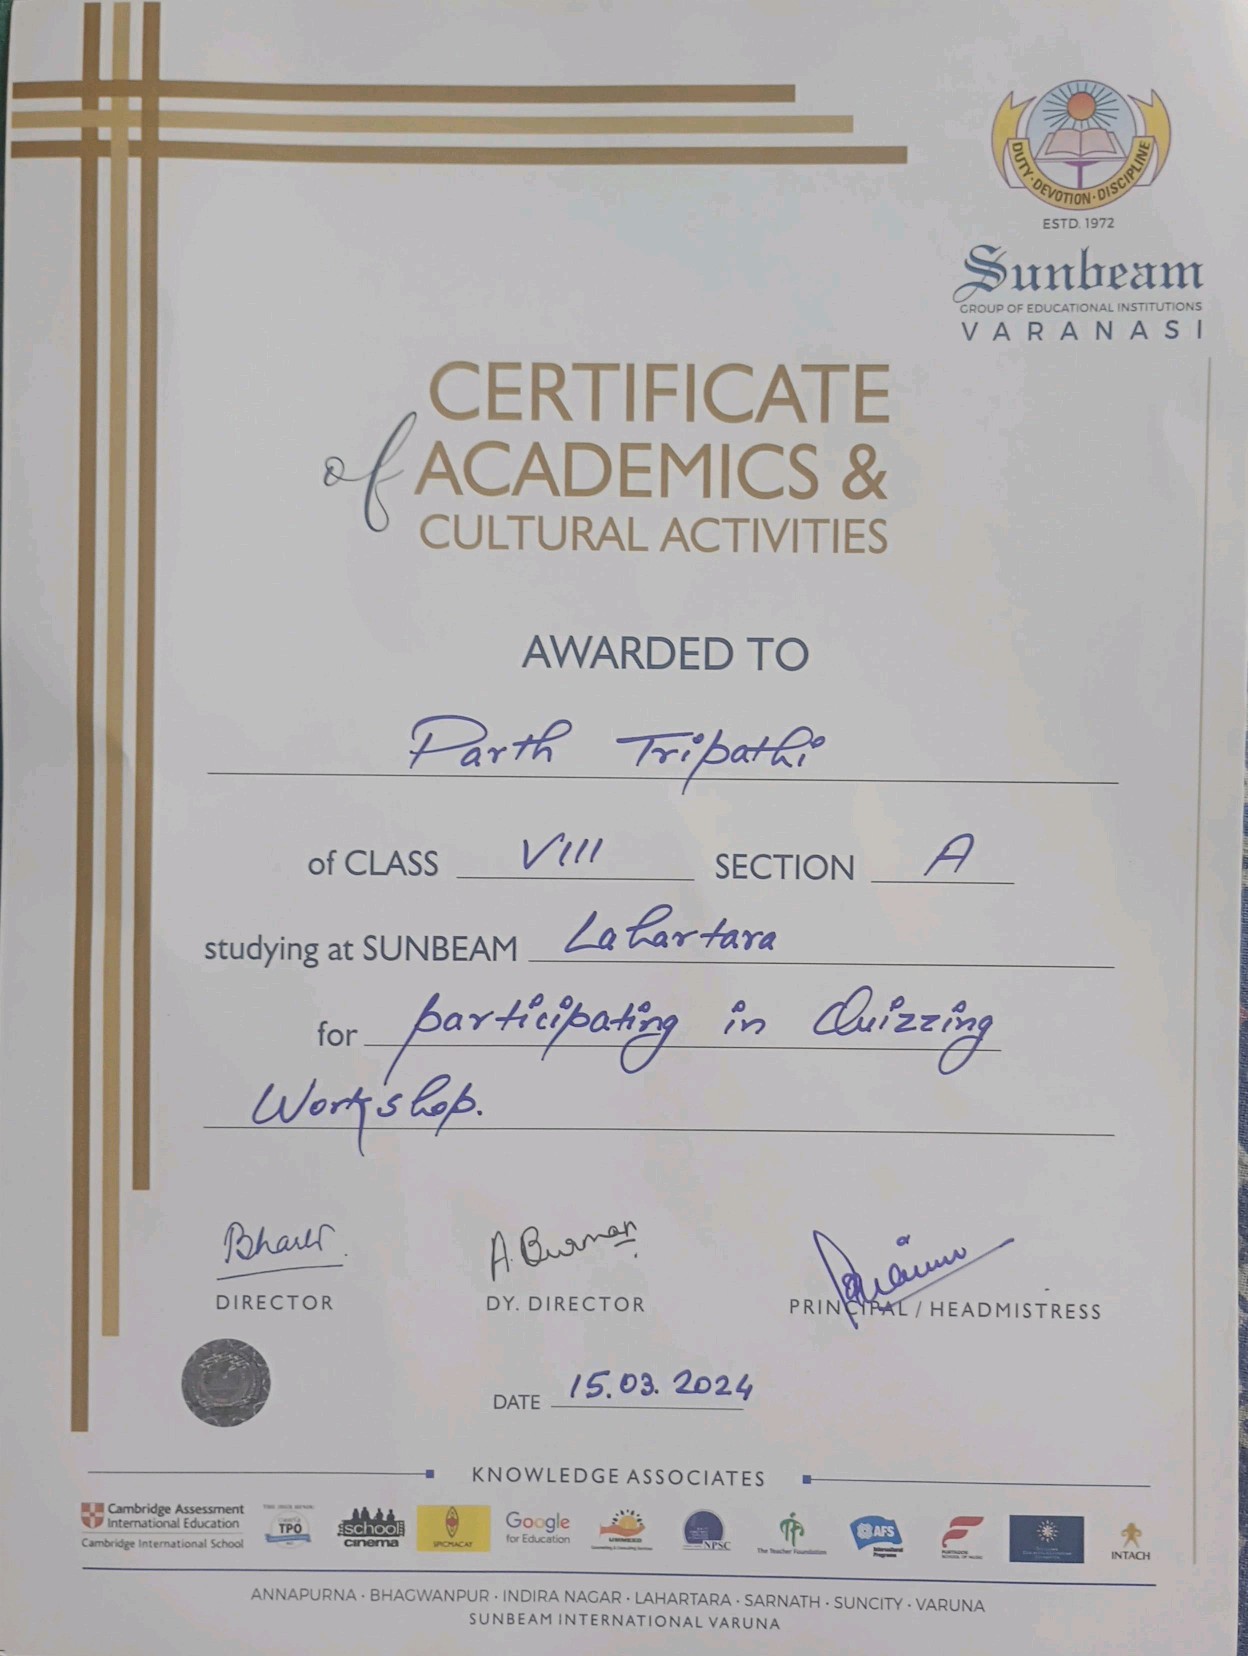 DUTY · DEVOTION · DISCIPLINE
ESTD. 1972
Sunbeam
GROUP OF EDUCATIONAL INSTITUTIONS
VARANASI
CERTIFICATE
of ACADEMICS &
CULTURAL ACTIVITIES
AWARDED TO
Parth Tripathi
of CLASS VIII SECTION A
studying at SUNBEAM Lahartara
for participating in Quizzing
Workshop.
A. Burman
DIRECTOR DY. DIRECTOR PRINCIPAL / HEADMISTRESS
DATE 15.03.2024
KNOWLEDGE ASSOCIATES
Cambridge Assessment
International Education
Cambridge International School
TPO
school
cinema
SPICMACAY
Google
for Education
NPSC
The Teacher Foundation
AFS
International
Programs
SCHOOL OF MUSIC
INTACH
ANNAPURNA · BHAGWANPUR · INDIRA NAGAR · LAHARTARA · SARNATH · SUNCITY · VARUNA
SUNBEAM INTERNATIONAL VARUNA